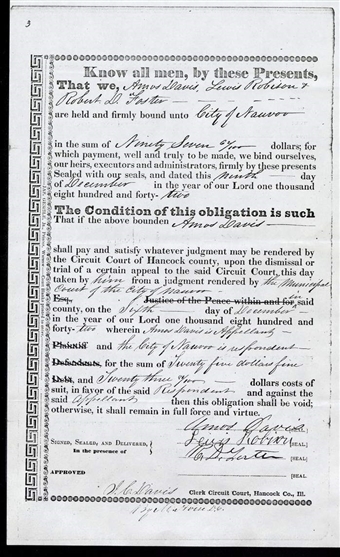 3
Know all men, by these Presents,
That we, Amos Davis, Lewis Robison &
Robert D. Foster —
are held and firmly bound unto City of Nauvoo
in the sum of Ninety Seven dollars; for
which payment, well and truly to be made, we bind ourselves,
our heirs, executors and administrators, firmly by these presents
Sealed with our seals, and dated this ninth day
of December in the year of our Lord one thousand
eight hundred and forty- two
The Condition of this obligation is such
That if the above bounden Amos Davis —
shall pay and satisfy whatever judgment may be rendered by
the Circuit Court of Hancock county, upon the dismissal or
trial of a certain appeal to the said Circuit Court, this day
taken by him from a judgment rendered by the Municipal
Court of the City of Nauvoo
Esq. Justice of the Peace within and for said
county, on the Sixth day of December
in the year of our Lord one thousand eight hundred and
forty- two wherein Amos Davis is Appellant —
Plaintiff and the City of Nauvoo is respondent —
Defendants, for the sum of Twenty five dollars fine
Debt, and Twenty three dollars costs of
suit, in favor of the said Respondent and against the
said Appellant then this obligation shall be void;
otherwise, it shall remain in full force and virtue.
Amos Davis
Signed, Sealed, and Delivered, Lewis Robison [SEAL]
In the presence of R. D. Foster [SEAL]
APPROVED [SEAL]
J. C. Davis Clerk Circuit Court, Hancock Co., Ill.